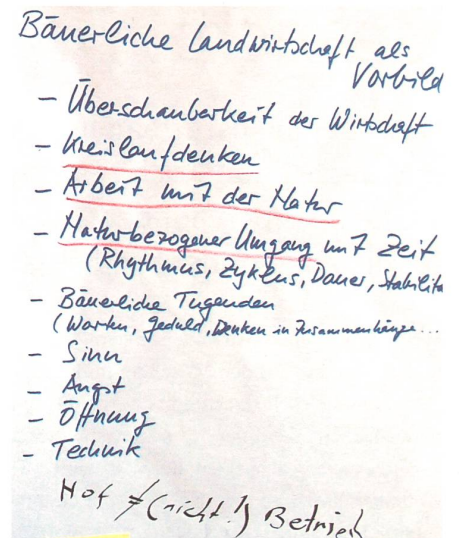 Bäuerliche Landwirtschaft als
Vorbild
- Überschaubarkeit der Wirtschaft
- Kreislaufdenken
- Arbeit mit der Natur
- Naturbezogener Umgang mit Zeit
(Rhythmus, Zyklus, Dauer, Stabilitä
- Bäuerliche Tugenden
(Warten, Geduld, Denken in Zusammenhänge...
- Sinn
- Angst
- Öffnung
- Technik
Hof ≠ (nicht!) Betrieb